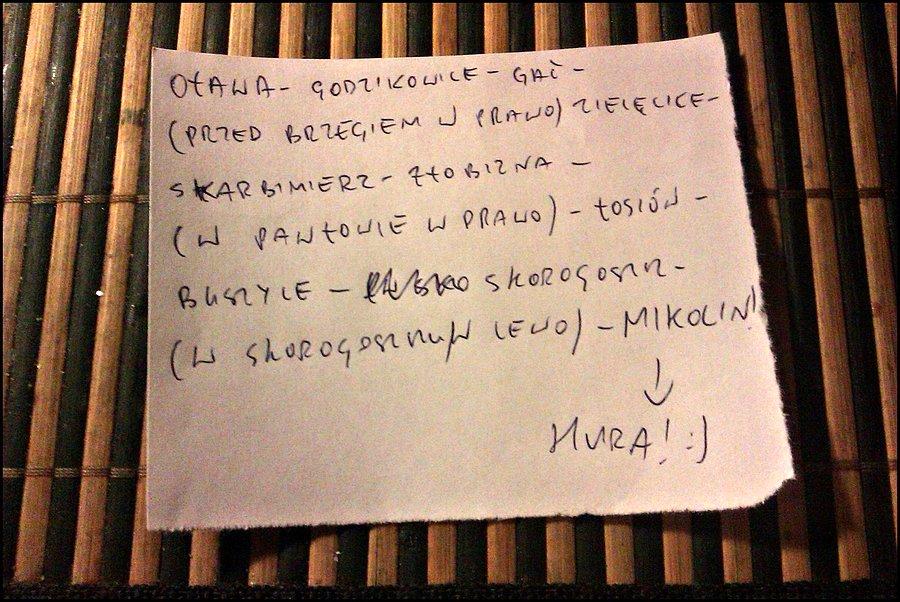 OŁAWA - GODZIKOWICE - GAĆ -
(PRZED BRZEGIEM W PRAWO) ZIELĘCICE -
SKARBIMIERZ - ŻŁOBIZNA -
(W PAWŁOWIE W PRAWO) - ŁOSIÓW -
BUSZYCE - SKOROGOSZCZ -
(W SKOROGOSZCZY W LEWO) - MIKOLIN!
↓
HURA! :)